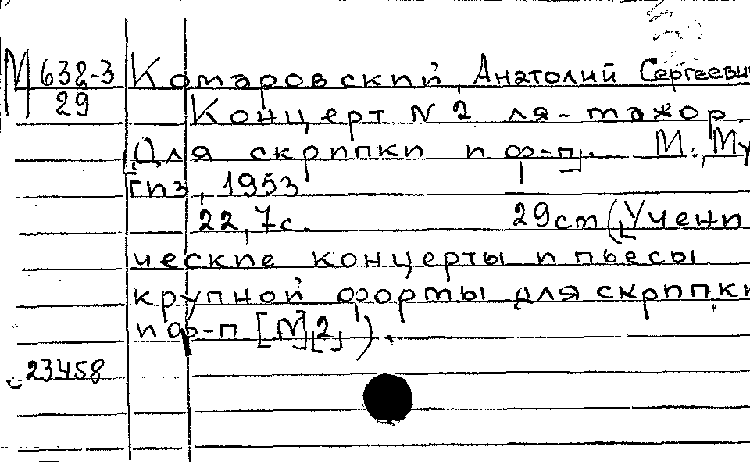 М 638-3 Комаровский, Анатолий Сергеевич
29 Концерт № 2 ля-мажор.
Для скрипки и ф-п. М., Му
гиз, 1953
22, 7 с. 29 см (Учени
ческие концерты и пьесы
крупной формы для скрипки
и ф-п [№ 2]).
23458